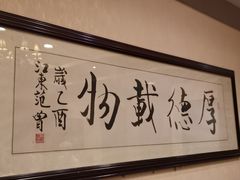 厚德載物
歲乙酉
江東范曾